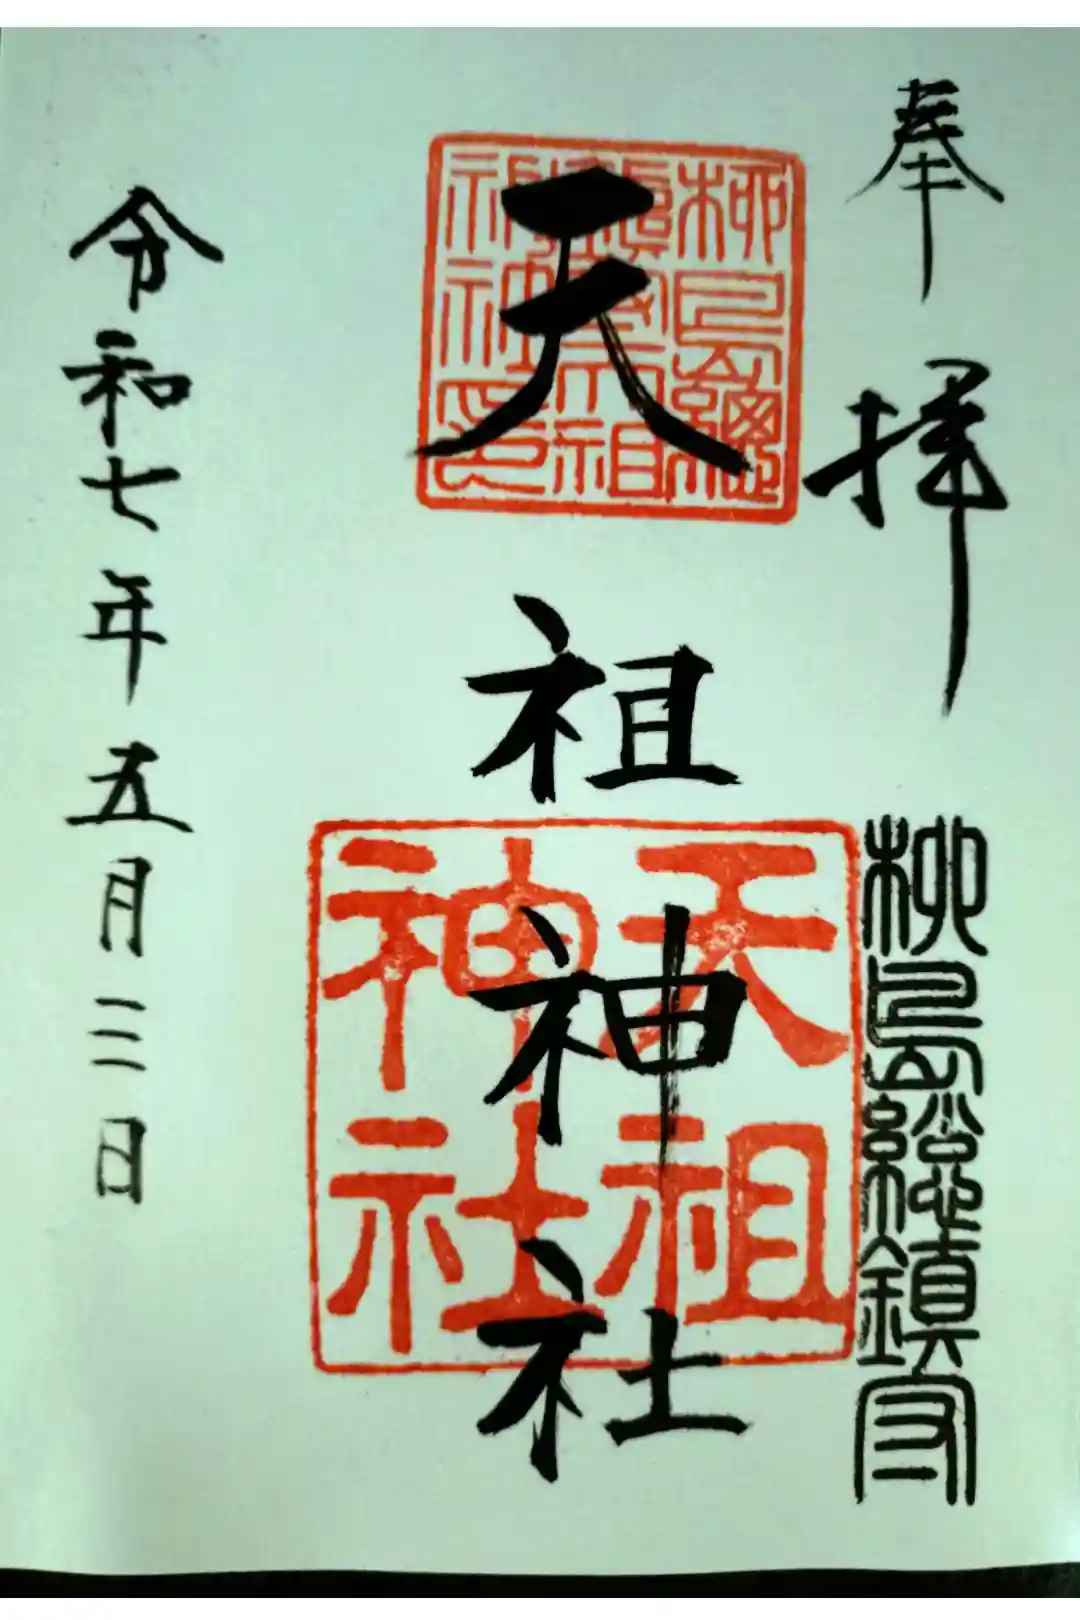 奉拝
柳島総鎮守
柳島總鎮守天祖神社印
天祖神社
天祖神社
令和七年五月三日